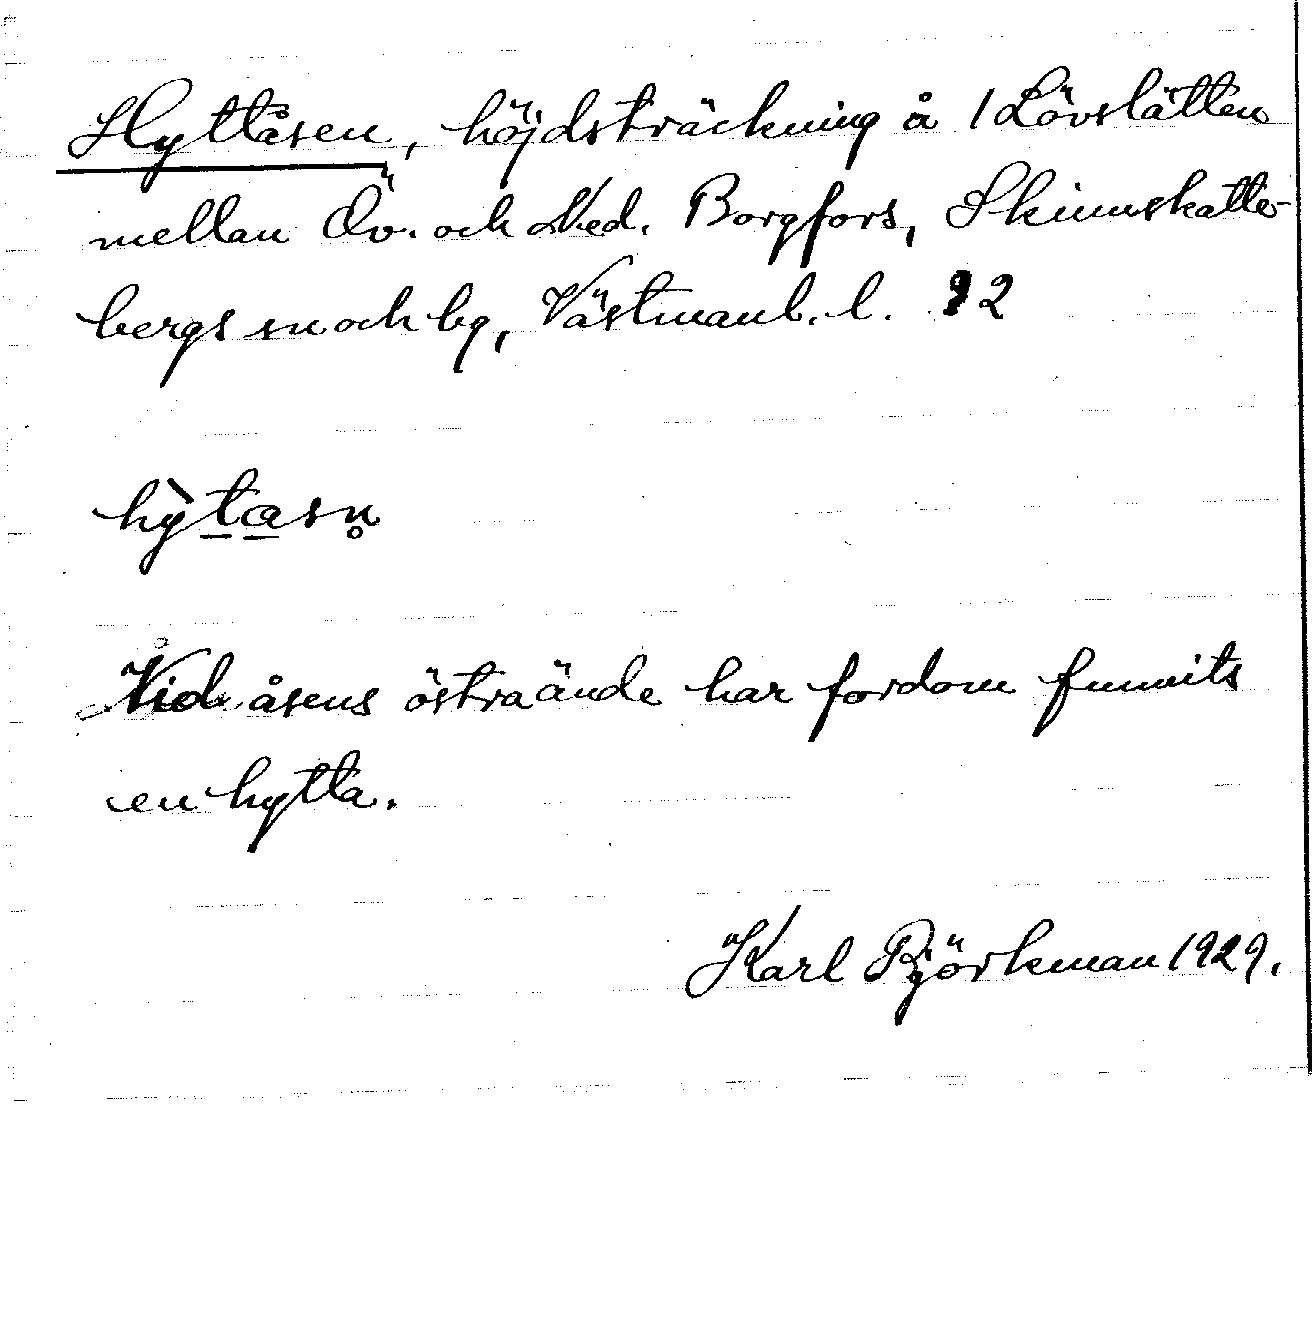 Hyttåsen, höjdsträckning å 1 Lövslätten
mellan Öv. och Ned. Borgfors, Skinnskatte-
bergs sn och bg, Västmanl. l. 92
hy̆̀t̲a̲sn̥
Vid åsens östra ände har fordom funnits
en hytta.
Karl Björkman 1929.